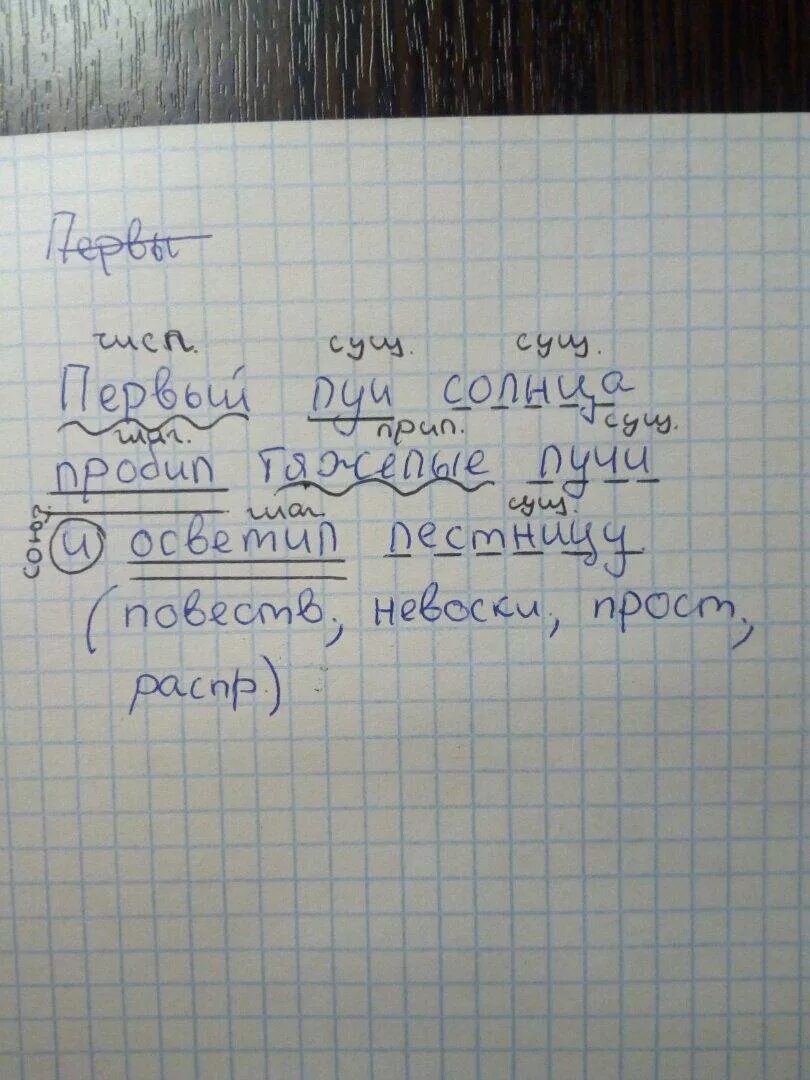 Первы
числ. сущ. сущ.
Первый луч солнца
глаг. прил. сущ.
пробил тяжелые лучи
союз глаг. сущ.
и осветил лестницу
(повеств., невоскл, прост,
распр.)